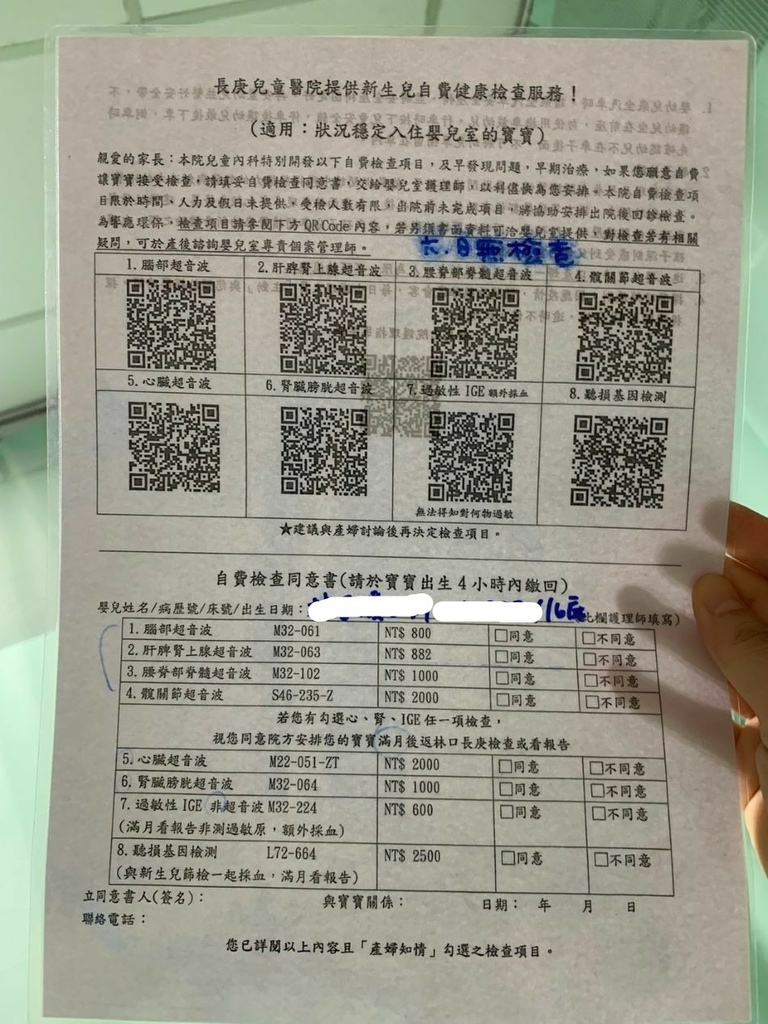 長庚兒童醫院提供新生兒自費健康檢查服務！
(適用：狀況穩定入住嬰兒室的寶寶)
親愛的家長：本院兒童內科特別開發以下自費檢查項目，及早發現問題，早期治療，如果您願意自費
讓寶寶接受檢查，請填妥自費檢查同意書，交給嬰兒室護理師，以利儘快為您安排。本院自費檢查項
目限於時間、人力及假日未提供，受檢人數有限，出院前未完成項目，將協助安排出院後回診檢查。
為響應環保，檢查項目請參閱下方 QR Code 內容，若另須書面資料可洽嬰兒室提供，對檢查若有相關
疑問，可於產後諮詢嬰兒室專責個案管理師。
六.日無檢查
1. 腦部超音波 2. 肝脾腎上腺超音波 3. 腰脊部脊髓超音波 4. 髖關節超音波
5. 心臟超音波 6. 腎臟膀胱超音波 7. 過敏性 IGE 額外採血 8. 聽損基因檢測
無法得知對何物過敏
★建議與產婦討論後再決定檢查項目。
自費檢查同意書(請於寶寶出生 4 小時內繳回)
嬰兒姓名/病歷號/床號/出生日期： 此欄護理師填寫)
1. 腦部超音波 M32-061 NT$ 800 □同意 □不同意
2. 肝脾腎上腺超音波 M32-063 NT$ 882 □同意 □不同意
3. 腰脊部脊髓超音波 M32-102 NT$ 1000 □同意 □不同意
4. 髖關節超音波 S46-235-Z NT$ 2000 □同意 □不同意
若您有勾選心、腎、IGE 任一項檢查，
視您同意院方安排您的寶寶滿月後返林口長庚檢查或看報告
5. 心臟超音波 M22-051-ZT NT$ 2000 □同意 □不同意
6. 腎臟膀胱超音波 M32-064 NT$ 1000 □同意 □不同意
7. 過敏性 IGE 非超音波 M32-224 NT$ 600 □同意 □不同意
(滿月看報告非測過敏原，額外採血)
8. 聽損基因檢測 L72-664 NT$ 2500 □同意 □不同意
(與新生兒篩檢一起採血，滿月看報告)
立同意書人(簽名)： 與寶寶關係： 日期： 年 月 日
聯絡電話：
您已詳閱以上內容且「產婦知情」勾選之檢查項目。